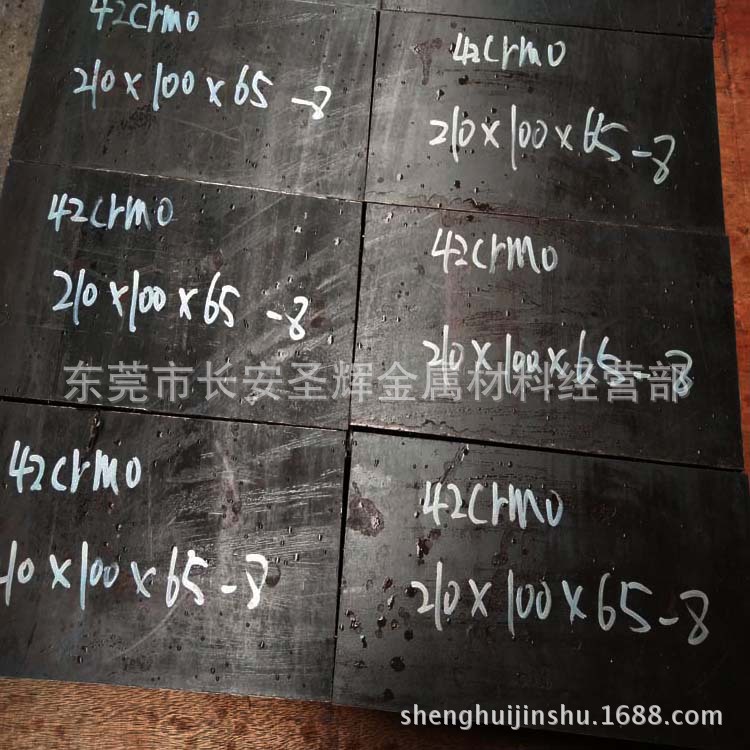 42crmo
210×100×65-8
42crmo
210×100×65-8
42crmo
210×100×65-8
42crmo
210×100×65-8
东莞市长安圣辉金属材料经营部
42crmo
10×100×65-8
42crmo
210×100×65-8
shenghuijinshu.1688.com